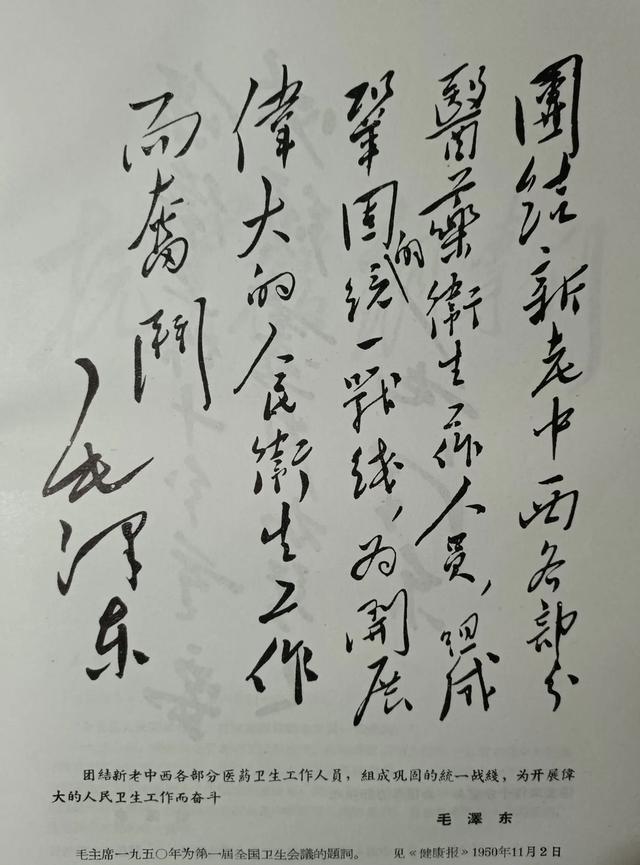 團结新老中西各部分
醫藥衛生工作人员，组成
鞏固的统一戰线，为開展
偉大的人民衛生工作
而奮鬥
毛澤东
团结新老中西各部分医药卫生工作人員，組成巩固的統一战綫，为开展偉
大的人民卫生工作而奋斗
毛澤东
毛主席一九五〇年为第一届全国卫生会議的題詞。 见《健康报》1950年11月2日